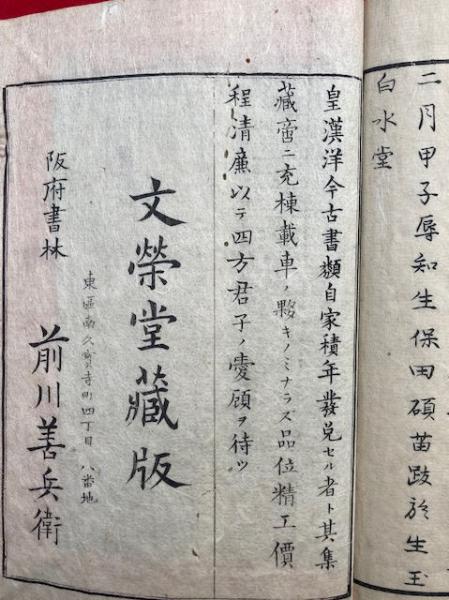 二月甲子辱知生保田碩苗跋於生玉
白水堂
皇漢洋今古書類自家積年發兌セル者ト其集
藏啻ニ充棟載車ノ夥キノミナラス品位精工價
程清廉以テ四方君子ノ愛顧ヲ待ツ
文榮堂藏版
東區南久寶寺町四丁目八番地
阪府書林 前川善兵衛